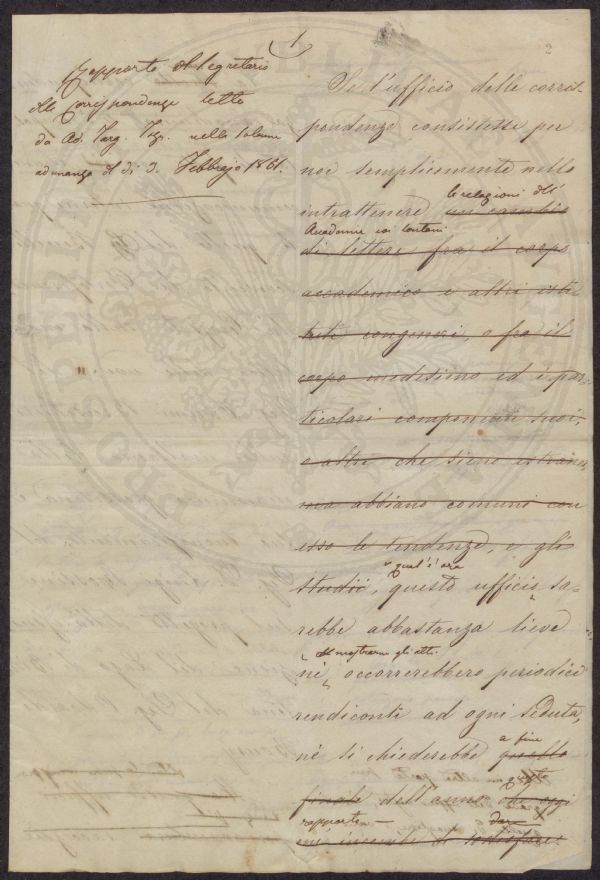 1
2
Rapporto del Segretario
delle Corrispondenze letto
da Ad. Targ. Tozz. nella solenne
adunanza del dì 3. Febbrajo 1861.
Se l'ufficio delle corris-
pondenze consistesse per
noi semplicemente nello
le relazioni dell'
intrattenere un cambio
Accademia coi lontani
di lettere fra il corpo
accademico e altri isti-
tuti congeneri, o fra il
corpo medesimo ed i par-
ticolari componenti suoi,
o altri che sieno estranei
ma abbiano comuni con
esso le tendenze, e gli
qual'è ora
studii, questo ufficio sa-
rebbe abbastanza lieve
a mostrarne gli atti.
nè, occorrerebbero periodici
rendiconti ad ogni seduta,
a fine
nè si chiederebbe quello
questo
finale dell'anno che oggi
rapporto — dare
mi incombe di sodisfare.